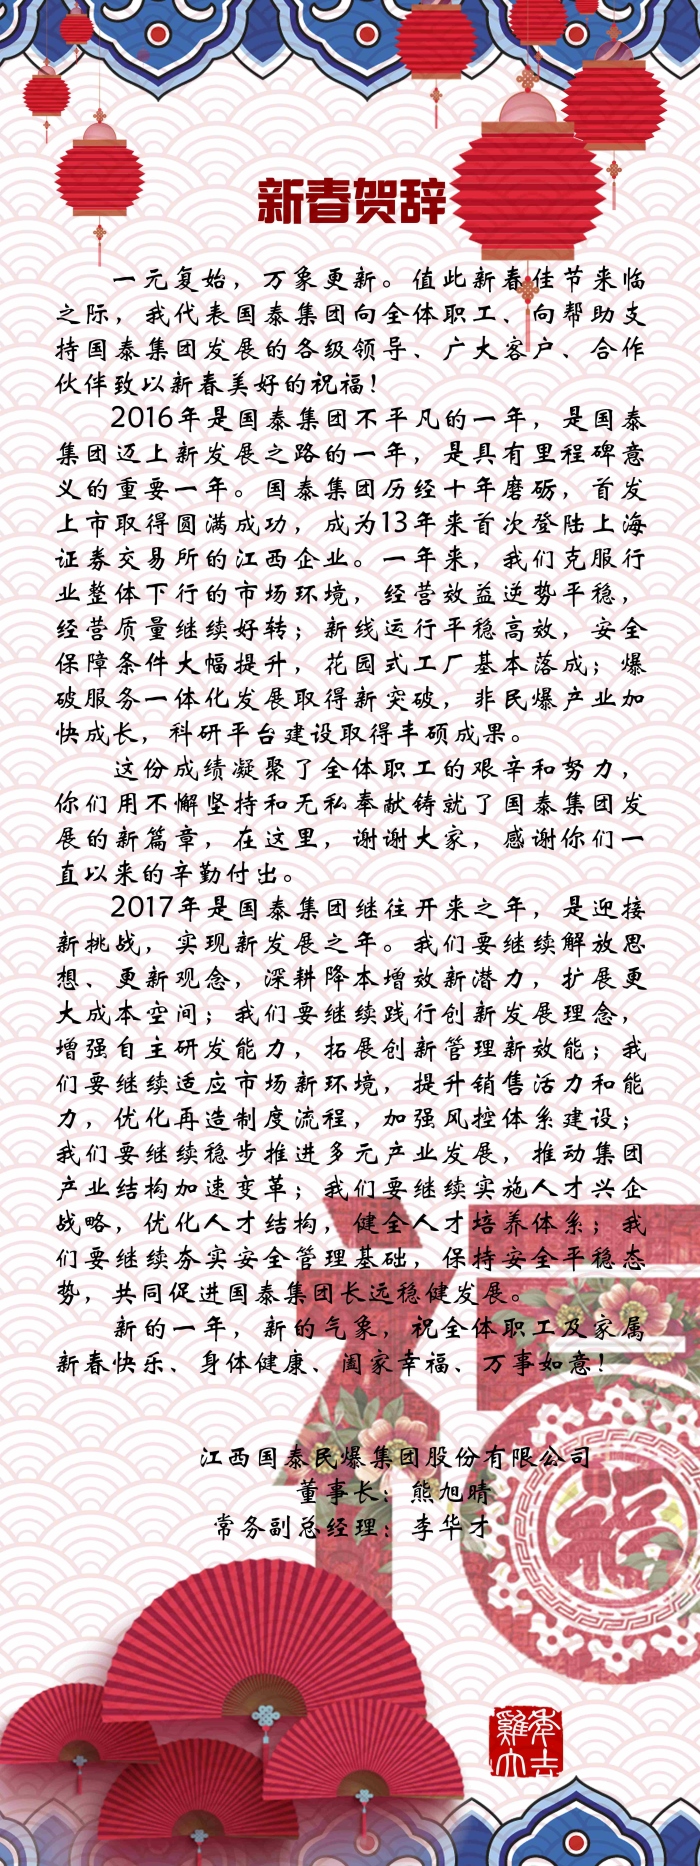 新春贺辞
一元复始，万象更新。值此新春佳节来临
之际，我代表国泰集团向全体职工、向帮助支
持国泰集团发展的各级领导、广大客户、合作
伙伴致以新春美好的祝福！
2016年是国泰集团不平凡的一年，是国泰
集团迈上新发展之路的一年，是具有里程碑意
义的重要一年。国泰集团历经十年磨砺，首发
上市取得圆满成功，成为13年来首次登陆上海
证券交易所的江西企业。一年来，我们克服行
业整体下行的市场环境，经营效益逆势平稳，
经营质量继续好转；新线运行平稳高效，安全
保障条件大幅提升，花园式工厂基本落成；爆
破服务一体化发展取得新突破，非民爆产业加
快成长，科研平台建设取得丰硕成果。
这份成绩凝聚了全体职工的艰辛和努力，
你们用不懈坚持和无私奉献铸就了国泰集团发
展的新篇章，在这里，谢谢大家，感谢你们一
直以来的辛勤付出。
2017年是国泰集团继往开来之年，是迎接
新挑战，实现新发展之年。我们要继续解放思
想、更新观念，深耕降本增效新潜力，扩展更
大成本空间；我们要继续践行创新发展理念，
增强自主研发能力，拓展创新管理新效能；我
们要继续适应市场新环境，提升销售活力和能
力，优化再造制度流程，加强风控体系建设；
我们要继续稳步推进多元产业发展，推动集团
产业结构加速变革；我们要继续实施人才兴企
战略，优化人才结构，健全人才培养体系；我
们要继续夯实安全管理基础，保持安全平稳态
势，共同促进国泰集团长远稳健发展。
新的一年，新的气象，祝全体职工及家属
新春快乐、身体健康、阖家幸福、万事如意！
江西国泰民爆集团股份有限公司
董事长：熊旭晴
常务副总经理：李华才
福
雞年大吉